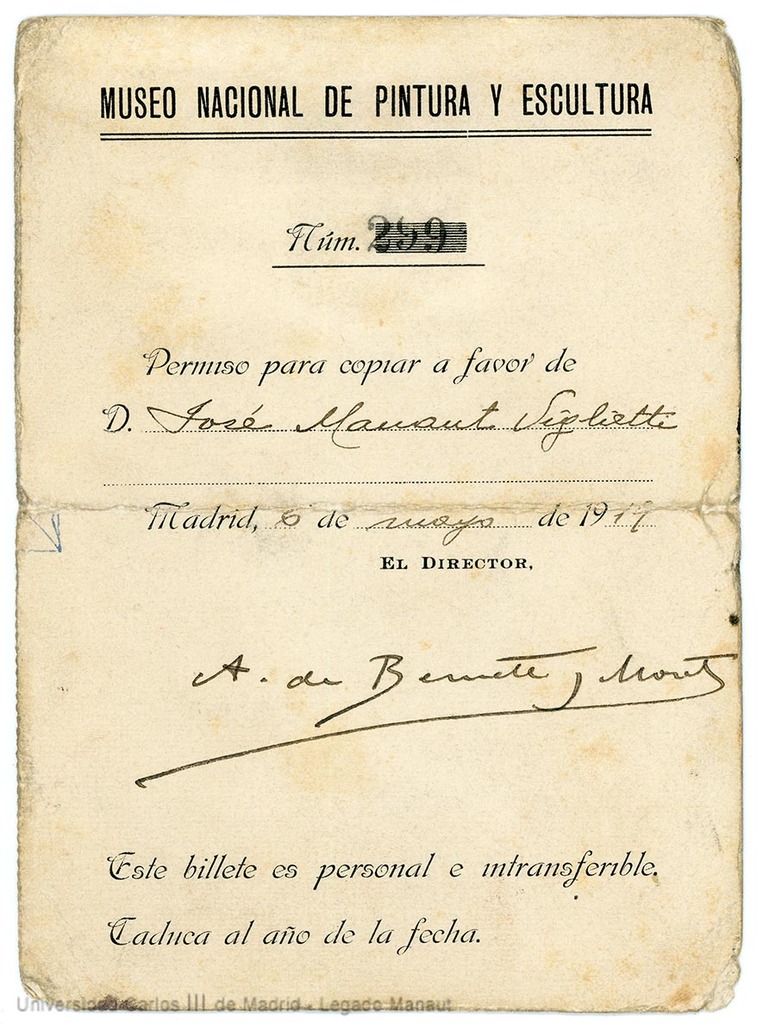 MUSEO NACIONAL DE PINTURA Y ESCULTURA
Núm. 299
Permiso para copiar a favor de
D. José Manaut Vigliette
Madrid, 6 de mayo de 1919
EL DIRECTOR,
A. de Beruete y Moret
Este billete es personal e intransferible.
Caduca al año de la fecha.
Universidad Carlos III de Madrid - Legado Manaut